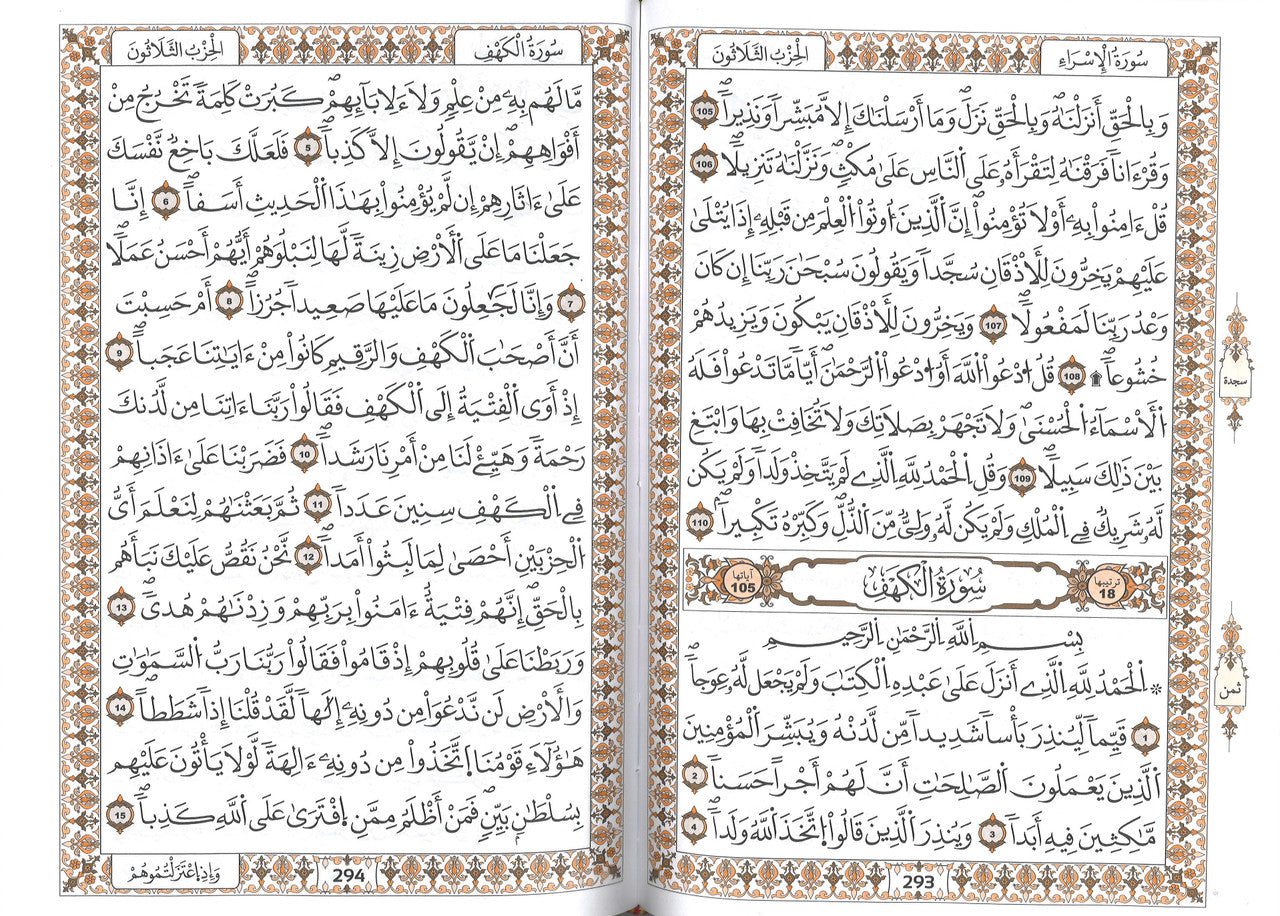 سُورَةُ الْإِسْرَاءِ
الْحِزْبُ الثَّلَاثُونَ
وَبِالْحَقِّ أَنزَلْنَٰهُ وَبِالْحَقِّ نَزَلَۖ وَمَا أَرْسَلْنَٰكَ إِلَّا مُبَشِّراً وَنَذِيراًۖ 105
وَقُرْءَاناً فَرَقْنَٰهُ لِتَقْرَأَهُۥ عَلَى اَلنَّاسِ عَلَىٰ مُكْثٖ وَنَزَّلْنَٰهُ تَنزِيلاًۖ 106
قُلْ ءَامِنُواْ بِهِۦٓ أَوْ لَا تُؤْمِنُوٓاْۖ إِنَّ اَلذِينَ أُوتُواْ اُلْعِلْمَ مِن قَبْلِهِۦٓ إِذَا يُتْلَىٰ
عَلَيْهِمْ يَخِرُّونَ لِلْأَذْقَانِ سُجَّداً وَيَقُولُونَ سُبْحَٰنَ رَبِّنَا إِن كَانَ
وَعْدُ رَبِّنَا لَمَفْعُولاًۖ 107 وَيَخِرُّونَ لِلْأَذْقَانِ يَبْكُونَ وَيَزِيدُهُمْ
خُشُوعاًۖ ۩ 108 قُلُ اُدْعُواْ اُللَّهَ أَوُ اُدْعُواْ اُلرَّحْمَٰنَ أَيّاً مَّا تَدْعُواْ فَلَهُ
اُلْأَسْمَآءُ اُلْحُسْنَىٰۖ وَلَا تَجْهَرْ بِصَلَاتِكَ وَلَا تُخَافِتْ بِهَا وَابْتَغِ
بَيْنَ ذَٰلِكَ سَبِيلاًۖ 109 وَقُلِ اِلْحَمْدُ لِلهِ اِلذِے لَمْ يَتَّخِذْ وَلَداً وَلَمْ يَكُن
لَّهُۥ شَرِيكٌ فِے اِلْمُلْكِ وَلَمْ يَكُن لَّهُۥ وَلِيٌّ مِّنَ اَلذُّلِّۖ وَكَبِّرْهُ تَكْبِيراًۖ 110
ترتيبها 18
سُورَةُ الْكَهْفِ
آياتها 105
بِسْمِ اِللَّهِ اِلرَّحْمَٰنِ اِلرَّحِيمِ
* اِلْحَمْدُ لِلهِ اِلذِےٓ أَنزَلَ عَلَىٰ عَبْدِهِ اِلْكِتَٰبَ وَلَمْ يَجْعَل لَّهُۥ عِوَجاًۖ
1 قَيِّماً لِّيُنذِرَ بَأْساً شَدِيداً مِّن لَّدُنْهُ وَيُبَشِّرَ اَلْمُؤْمِنِينَ
اَلذِينَ يَعْمَلُونَ اَلصَّٰلِحَٰتِ أَنَّ لَهُمْ أَجْراً حَسَناًۖ 2
مَّٰكِثِينَ فِيهِ أَبَداًۖ 3 وَيُنذِرَ اَلذِينَ قَالُواْ اُتَّخَذَ اَللَّهُ وَلَداًۖ 4
293
سجدة
ثمن
سُورَةُ الْكَهْفِ
الْحِزْبُ الثَّلَاثُونَ
مَّا لَهُم بِهِۦ مِنْ عِلْمٖ وَلَا لِأٓبَآئِهِمْۖ كَبُرَتْ كَلِمَةً تَخْرُجُ مِنْ
أَفْوَٰهِهِمْۖ إِنْ يَّقُولُونَ إِلَّا كَذِباًۖ 5 فَلَعَلَّكَ بَٰخِعٌ نَّفْسَكَ
عَلَىٰ ءَاثَٰرِهِمْ إِن لَّمْ يُؤْمِنُواْ بِهَٰذَا اَلْحَدِيثِ أَسَفاًۖ 6 إِنَّا
جَعَلْنَا مَا عَلَى اَلْأَرْضِ زِينَةً لَّهَا لِنَبْلُوَهُمْ أَيُّهُمْ أَحْسَنُ عَمَلاًۖ
7 وَإِنَّا لَجَٰعِلُونَ مَا عَلَيْهَا صَعِيداً جُرُزاًۖ 8 أَمْ حَسِبْتَ
أَنَّ أَصْحَٰبَ اَلْكَهْفِ وَالرَّقِيمِ كَانُواْ مِنْ ءَايَٰتِنَا عَجَباًۖ 9
إِذْ أَوَى اَلْفِتْيَةُ إِلَى اَلْكَهْفِ فَقَالُواْ رَبَّنَا ءَاتِنَا مِن لَّدُنكَ
رَحْمَةً وَهَيِّئْ لَنَا مِنْ أَمْرِنَا رَشَداًۖ 10 فَضَرَبْنَا عَلَىٰ ءَاذَانِهِمْ
فِے اِلْكَهْفِ سِنِينَ عَدَداًۖ 11 ثُمَّ بَعَثْنَٰهُمْ لِنَعْلَمَ أَيُّ
اُلْحِزْبَيْنِ أَحْصَىٰ لِمَا لَبِثُوٓاْ أَمَداًۖ 12 نَّحْنُ نَقُصُّ عَلَيْكَ نَبَأَهُم
بِالْحَقِّۖ إِنَّهُمْ فِتْيَةٌ ءَامَنُواْ بِرَبِّهِمْ وَزِدْنَٰهُمْ هُدىًۖ 13
وَرَبَطْنَا عَلَىٰ قُلُوبِهِمْ إِذْ قَامُواْ فَقَالُواْ رَبُّنَا رَبُّ اُلسَّمَٰوَٰتِ
وَالْأَرْضِ لَن نَّدْعُوَاْ مِن دُونِهِۦٓ إِلَٰهاً لَّقَدْ قُلْنَا إِذاً شَطَطاًۖ 14
هَٰٓؤُلَآءِ قَوْمُنَا اَتَّخَذُواْ مِن دُونِهِۦٓ ءَالِهَةً لَّوْلَا يَأْتُونَ عَلَيْهِم
بِسُلْطَٰنِۭ بَيِّنٖۖ فَمَنْ أَظْلَمُ مِمَّنِ اِفْتَرَىٰ عَلَى اَللَّهِ كَذِباًۖ 15
وَإِذِ اِعْتَزَلْتُمُوهُمْ
294